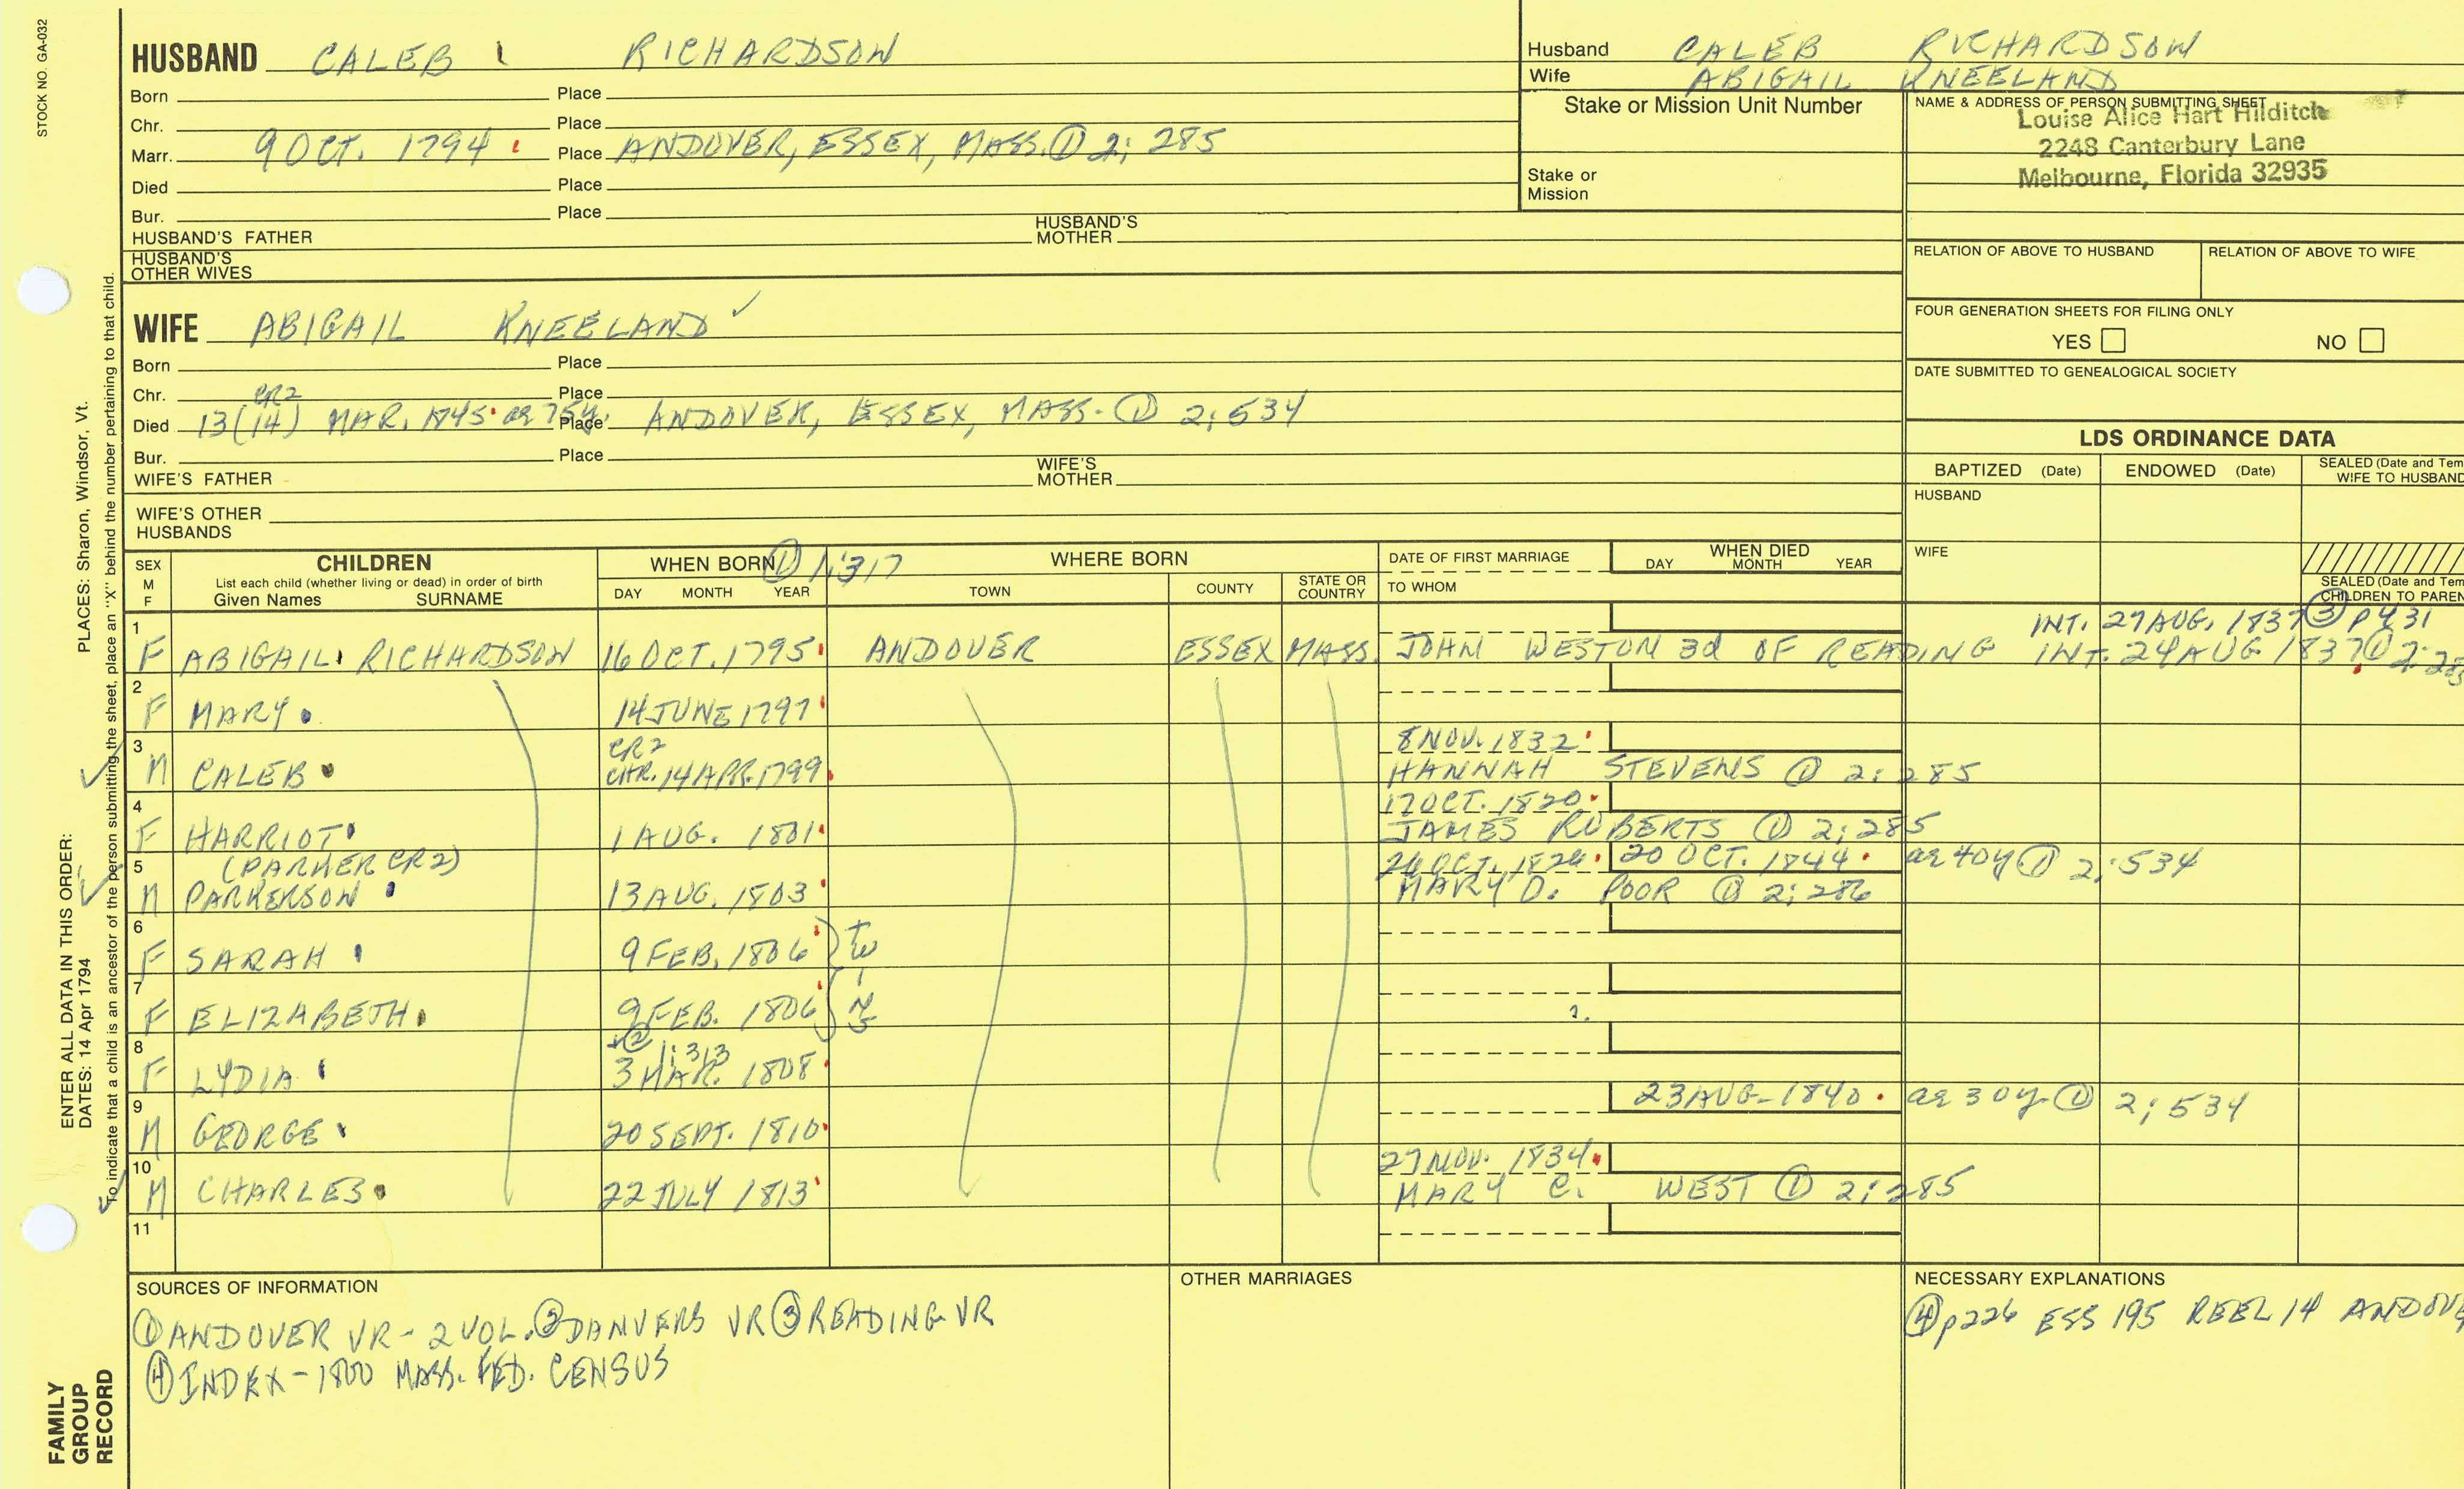 STOCK NO. GA-032
HUSBAND CALEB RICHARDSON
Born Place
Chr. Place
Marr. 9 OCT. 1794 Place ANDOVER, ESSEX, MASS. ① 2; 285
Died Place
Bur. Place
HUSBAND'S FATHER HUSBAND'S MOTHER
HUSBAND'S OTHER WIVES
Husband CALEB RICHARDSON
Wife ABIGAIL KNEELAND
Stake or Mission Unit Number
Stake or Mission
NAME & ADDRESS OF PERSON SUBMITTING SHEET
Louise Alice Hart Hilditch
2248 Canterbury Lane
Melbourne, Florida 32935
RELATION OF ABOVE TO HUSBAND RELATION OF ABOVE TO WIFE
FOUR GENERATION SHEETS FOR FILING ONLY
YES NO
DATE SUBMITTED TO GENEALOGICAL SOCIETY
WIFE ABIGAIL KNEELAND ✓
Born Place
Chr. Place
CR2
Died 13(14) MAR. ae 75y. Place ANDOVER, ESSEX, MASS. ① 2; 534
Bur. Place
WIFE'S FATHER WIFE'S MOTHER
WIFE'S OTHER HUSBANDS
LDS ORDINANCE DATA
BAPTIZED (Date) ENDOWED (Date) SEALED (Date and Tem
WIFE TO HUSBAND
HUSBAND
WIFE
SEALED (Date and Tem
CHILDREN TO PAREN
SEX M F
CHILDREN
List each child (whether living or dead) in order of birth
Given Names SURNAME
WHEN BORN ① 1; 317
DAY MONTH YEAR
WHERE BORN
TOWN COUNTY STATE OR COUNTRY
DATE OF FIRST MARRIAGE
TO WHOM
WHEN DIED
DAY MONTH YEAR
INT. 27 AUG. 1837 ③ p 431
1 F ABIGAIL RICHARDSON 16 OCT. 1795 ANDOVER ESSEX MASS. JOHN WESTON 3d OF READING INT. 24 AUG 1837 ① 2; 285
2 F MARY 14 JUNE 1797
CR2 8 NOV. 1832
3 M CALEB CHR. 14 APR. 1799 HANNAH STEVENS ① 2; 285
17 OCT. 1820
4 F HARRIOT 1 AUG. 1801 JAMES ROBERTS ① 2; 285
(PARKER CR2) OCT. 20 OCT. 1844 ae 40y ① 2; 534
5 M PARKERSON 13 AUG. 1803 MARY D. POOR ① 2; 286
6 F SARAH 9 FEB. 1806 } TWINS
7 F ELIZABETH 9 FEB. 1806
② 1; 313
8 F LYDIA 3 MAR. 1808
23 AUG 1840 ae 30y ① 2; 534
9 M GEORGE 20 SEPT. 1810
27 NOV. 1834
10 M CHARLES 22 JULY 1813 MARY C. WEST ① 2; 285
11
SOURCES OF INFORMATION
① ANDOVER VR - 2 VOL. ② DANVERS VR ③ READING VR
④ INDEX - 1800 MASS. FED. CENSUS
OTHER MARRIAGES
NECESSARY EXPLANATIONS
④ p226 ESS 195 REEL 14 ANDOVE
FAMILY GROUP RECORD
ENTER ALL DATA IN THIS ORDER:
DATES: 14 Apr 1794
PLACES: Sharon, Windsor, Vt.
To indicate that a child is an ancestor of the person submitting the sheet, place an "X" behind the number pertaining to that child.